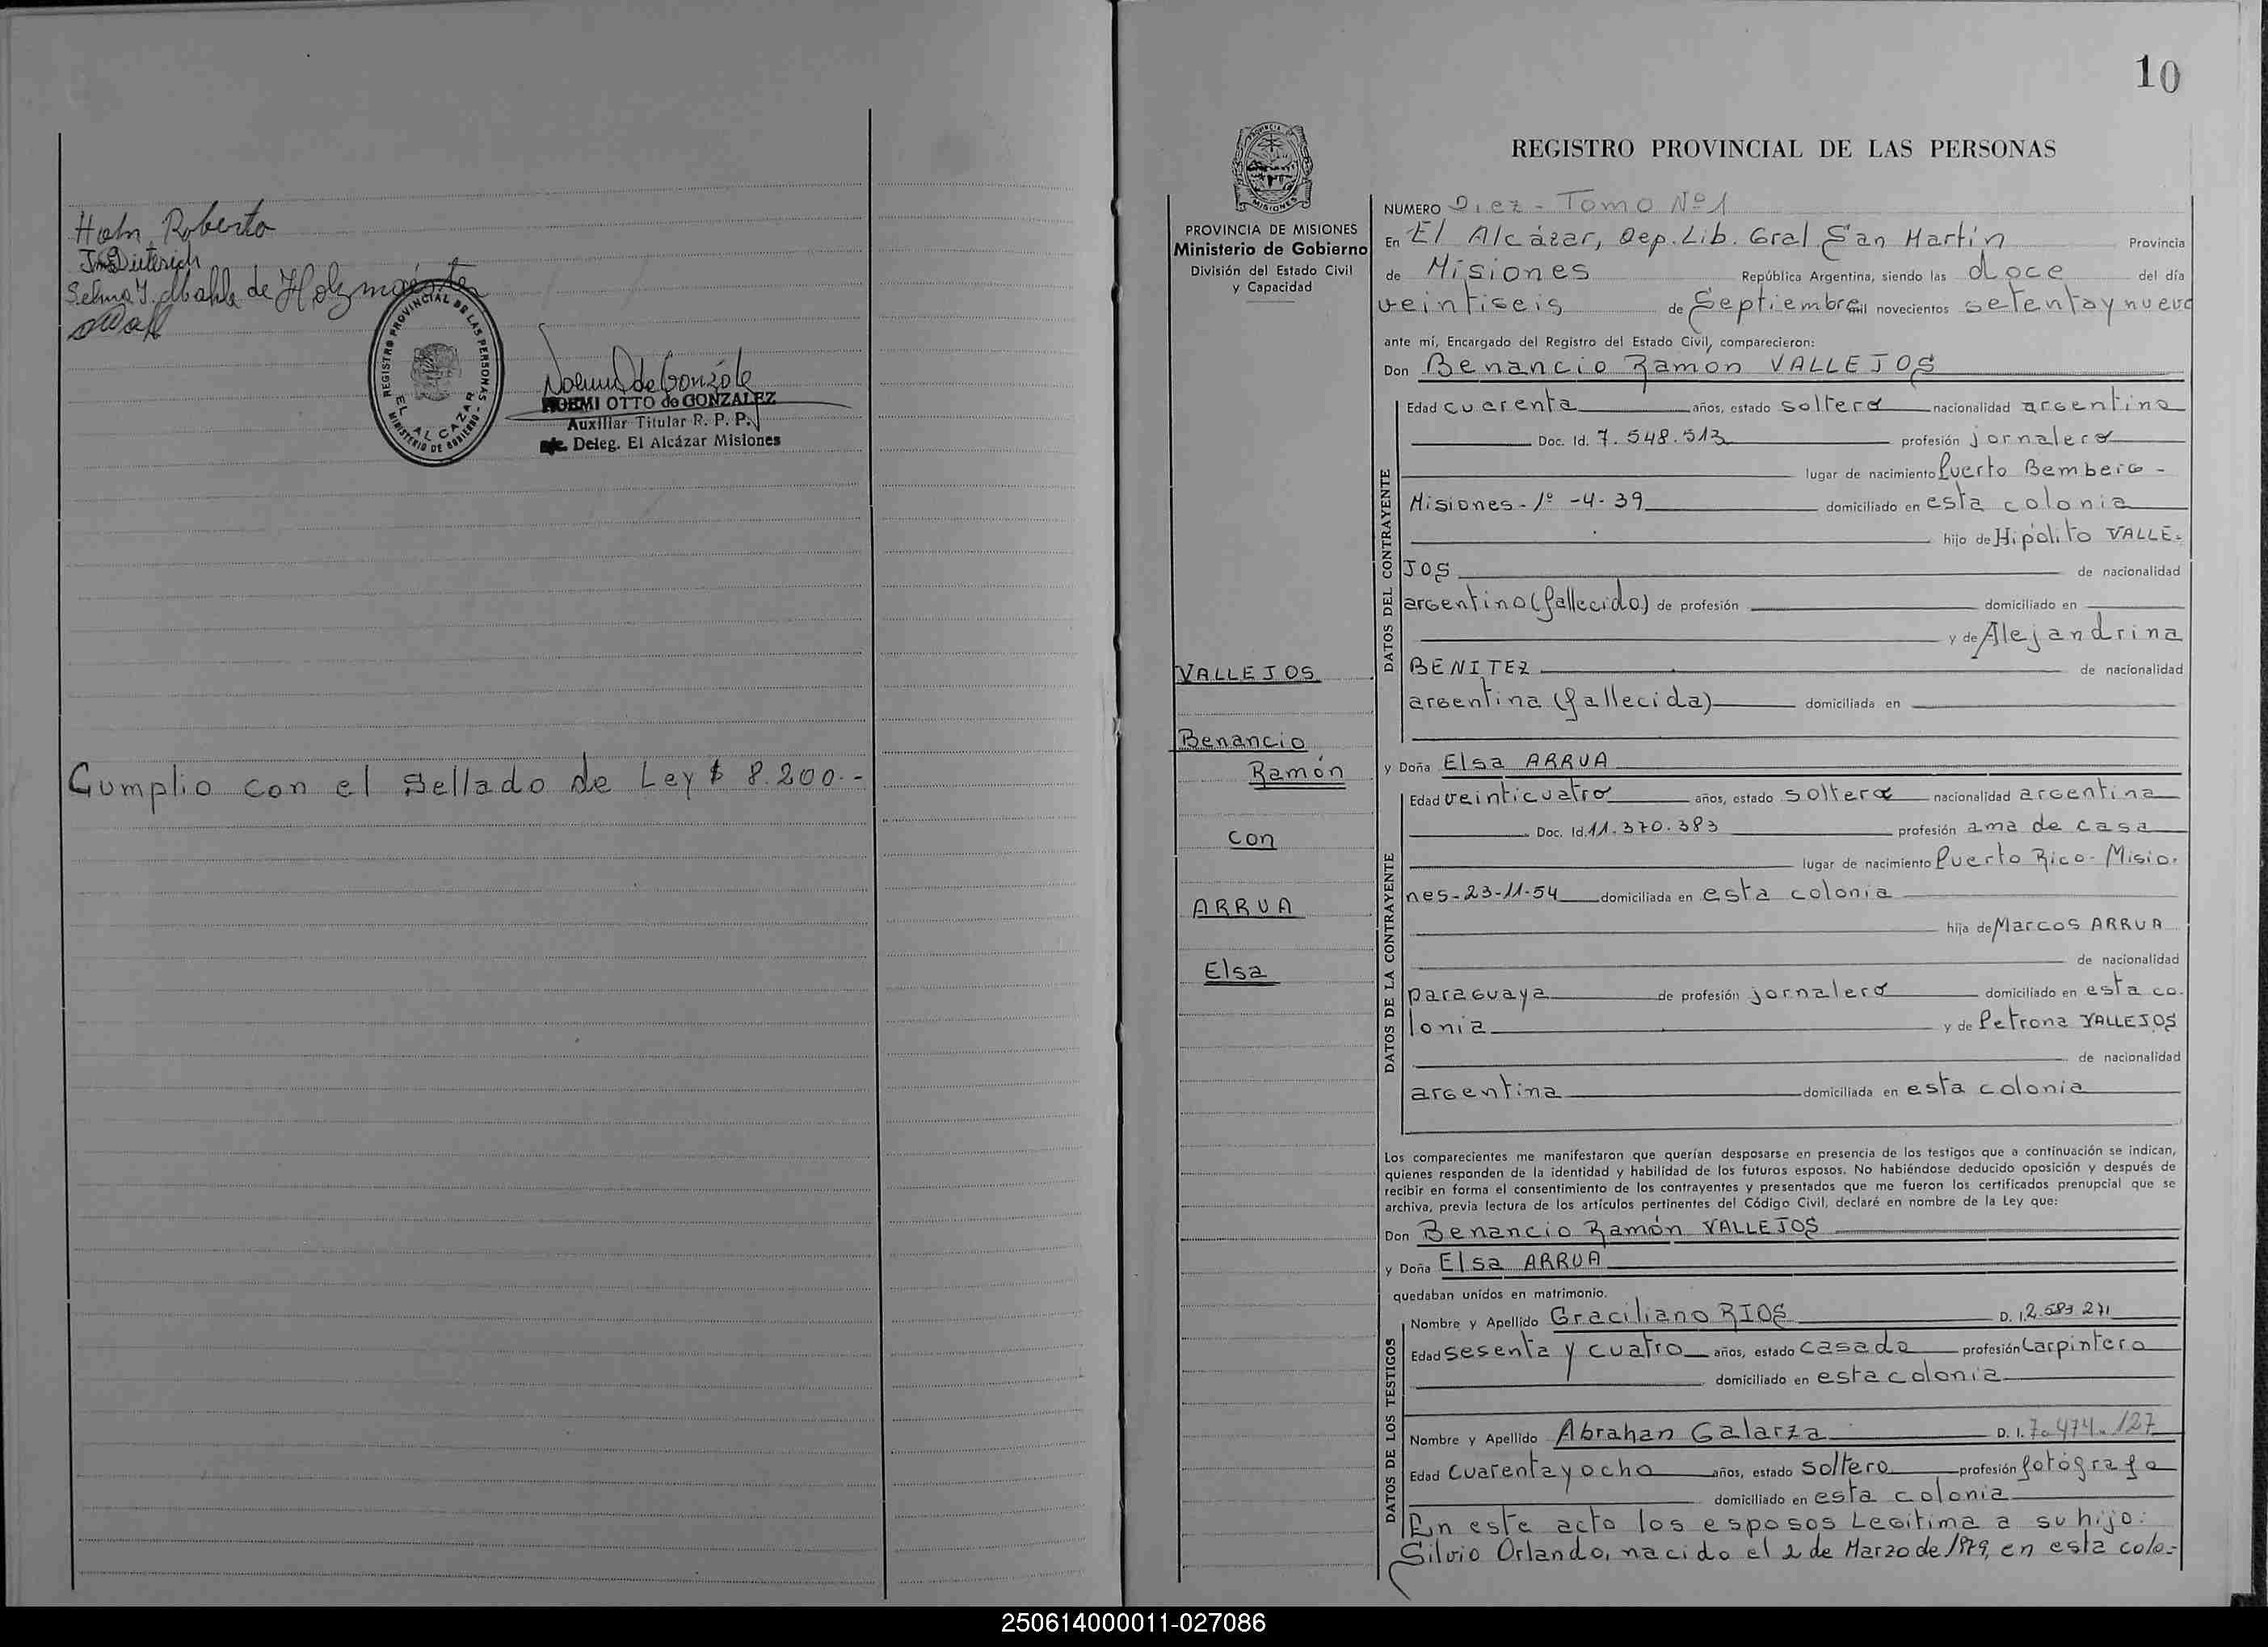 Hahn Roberto
Selma Y. Mahle de Holzmaister
REGISTRO PROVINCIAL DE LAS PERSONAS
EL ALCAZAR
MINISTERIO DE GOBIERNO
Noemi O de Gonzále
NOEMI OTTO de GONZALEZ
Auxiliar Titular R. P. P.
a/c. Deleg. El Alcázar Misiones
Cumplio con el Sellado de Ley $ 8.200.-
10
PROVINCIA DE MISIONES
Ministerio de Gobierno
División del Estado Civil
y Capacidad
VALLEJOS
Benancio
Ramón
con
ARRUA
Elsa
REGISTRO PROVINCIAL DE LAS PERSONAS
NUMERO Diez - Tomo Nº 1
En El Alcázar, Dep. Lib. Gral. San Martín Provincia
de Misiones República Argentina, siendo las doce del día
veintiseis de Septiembre mil novecientos setenta y nueve
ante mí, Encargado del Registro del Estado Civil, comparecieron:
Don Benancio Ramón VALLEJOS
DATOS DEL CONTRAYENTE
Edad cuarenta años, estado soltero nacionalidad argentina
Doc. Id. 7.548.513 profesión jornalero
lugar de nacimiento Puerto Bemberg -
Misiones - 1º -4- 39 domiciliado en esta colonia
hijo de Hipólito VALLE-
JOS de nacionalidad
argentino (fallecido) de profesión domiciliado en
y de Alejandrina
BENITEZ de nacionalidad
argentina (fallecida) domiciliada en
y Doña Elsa ARRUA
DATOS DE LA CONTRAYENTE
Edad veinticuatro años, estado soltera nacionalidad argentina
Doc. Id. 11.370.383 profesión ama de casa
lugar de nacimiento Puerto Rico - Misio-
nes - 23-11-54 domiciliada en esta colonia
hija de Marcos ARRUA
de nacionalidad
paraguaya de profesión jornalero domiciliado en esta co-
lonia y de Petrona VALLEJOS
de nacionalidad
argentina domiciliada en esta colonia
Los comparecientes me manifestaron que querían desposarse en presencia de los testigos que a continuación se indican,
quienes responden de la identidad y habilidad de los futuros esposos. No habiéndose deducido oposición y después de
recibir en forma el consentimiento de los contrayentes y presentados que me fueron los certificados prenupcial que se
archiva, previa lectura de los artículos pertinentes del Código Civil, declaré en nombre de la Ley que:
Don Benancio Ramón VALLEJOS
y Doña Elsa ARRUA
quedaban unidos en matrimonio.
DATOS DE LOS TESTIGOS
Nombre y Apellido Graciliano RIOS D. I. 2.589.271
Edad sesenta y cuatro años, estado casado profesión Carpintero
domiciliado en esta colonia
Nombre y Apellido Abrahan Galarza D. I. 7.474.127
Edad Cuarenta y ocho años, estado soltero profesión fotógrafo
domiciliado en esta colonia
En este acto los esposos Legitima a su hijo:
Silvio Orlando, nacido el 2 de Marzo de 1979, en esta colo-
250614000011-027086